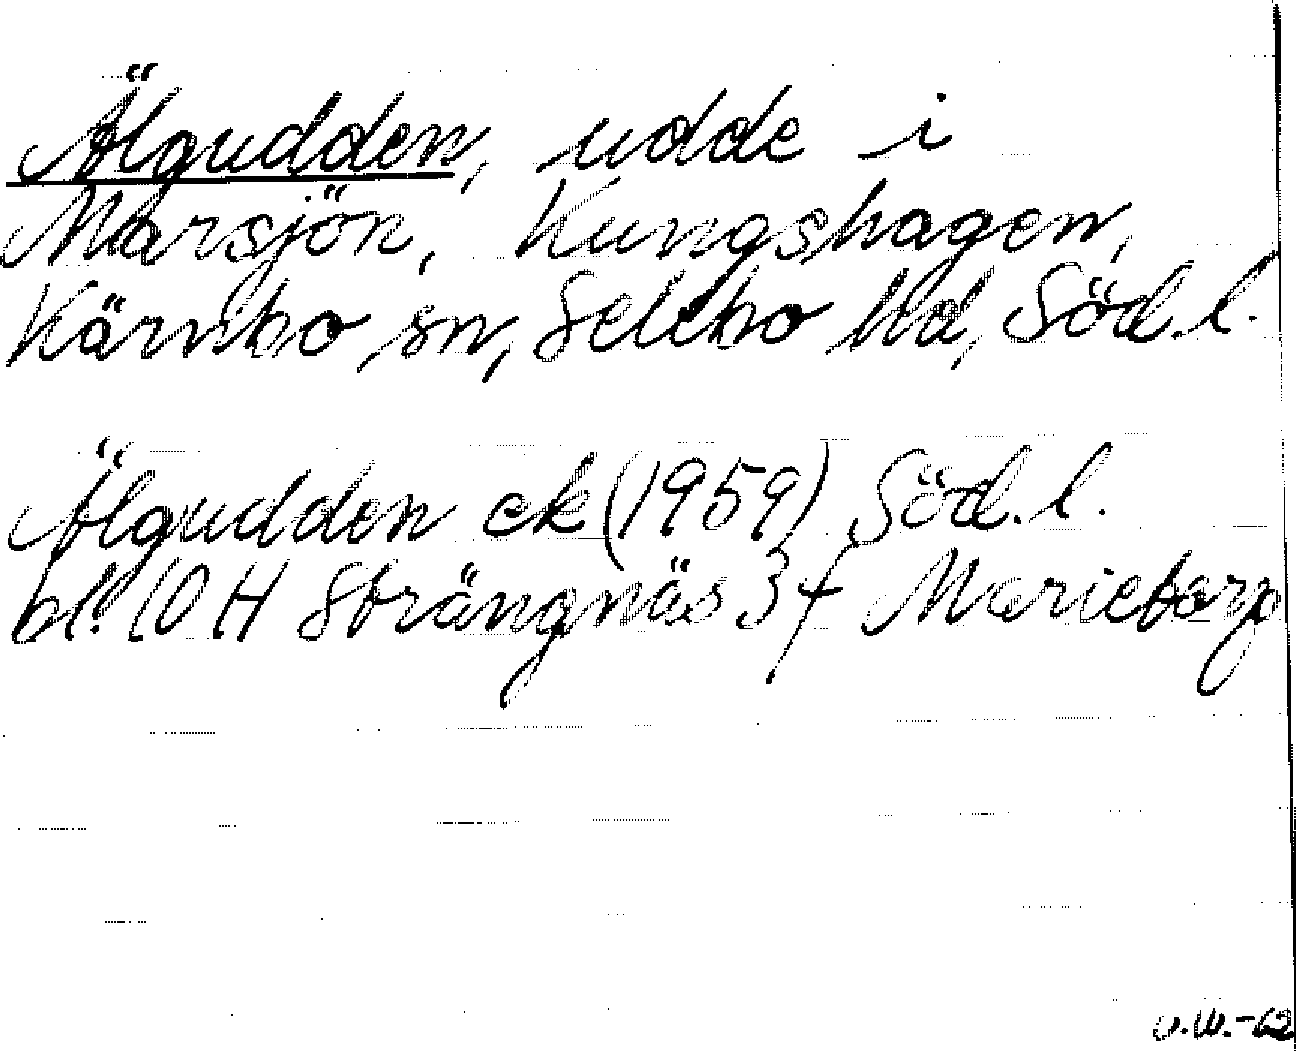 Älgudden, udde i
Marsjön, Kungshagen,
Kärnbo sn, Selebo hd, Söd. l.
Älgudden ek (1959) Söd. l.
bl. 10 H Strängnäs 3 f Marieborg
v.W.-62